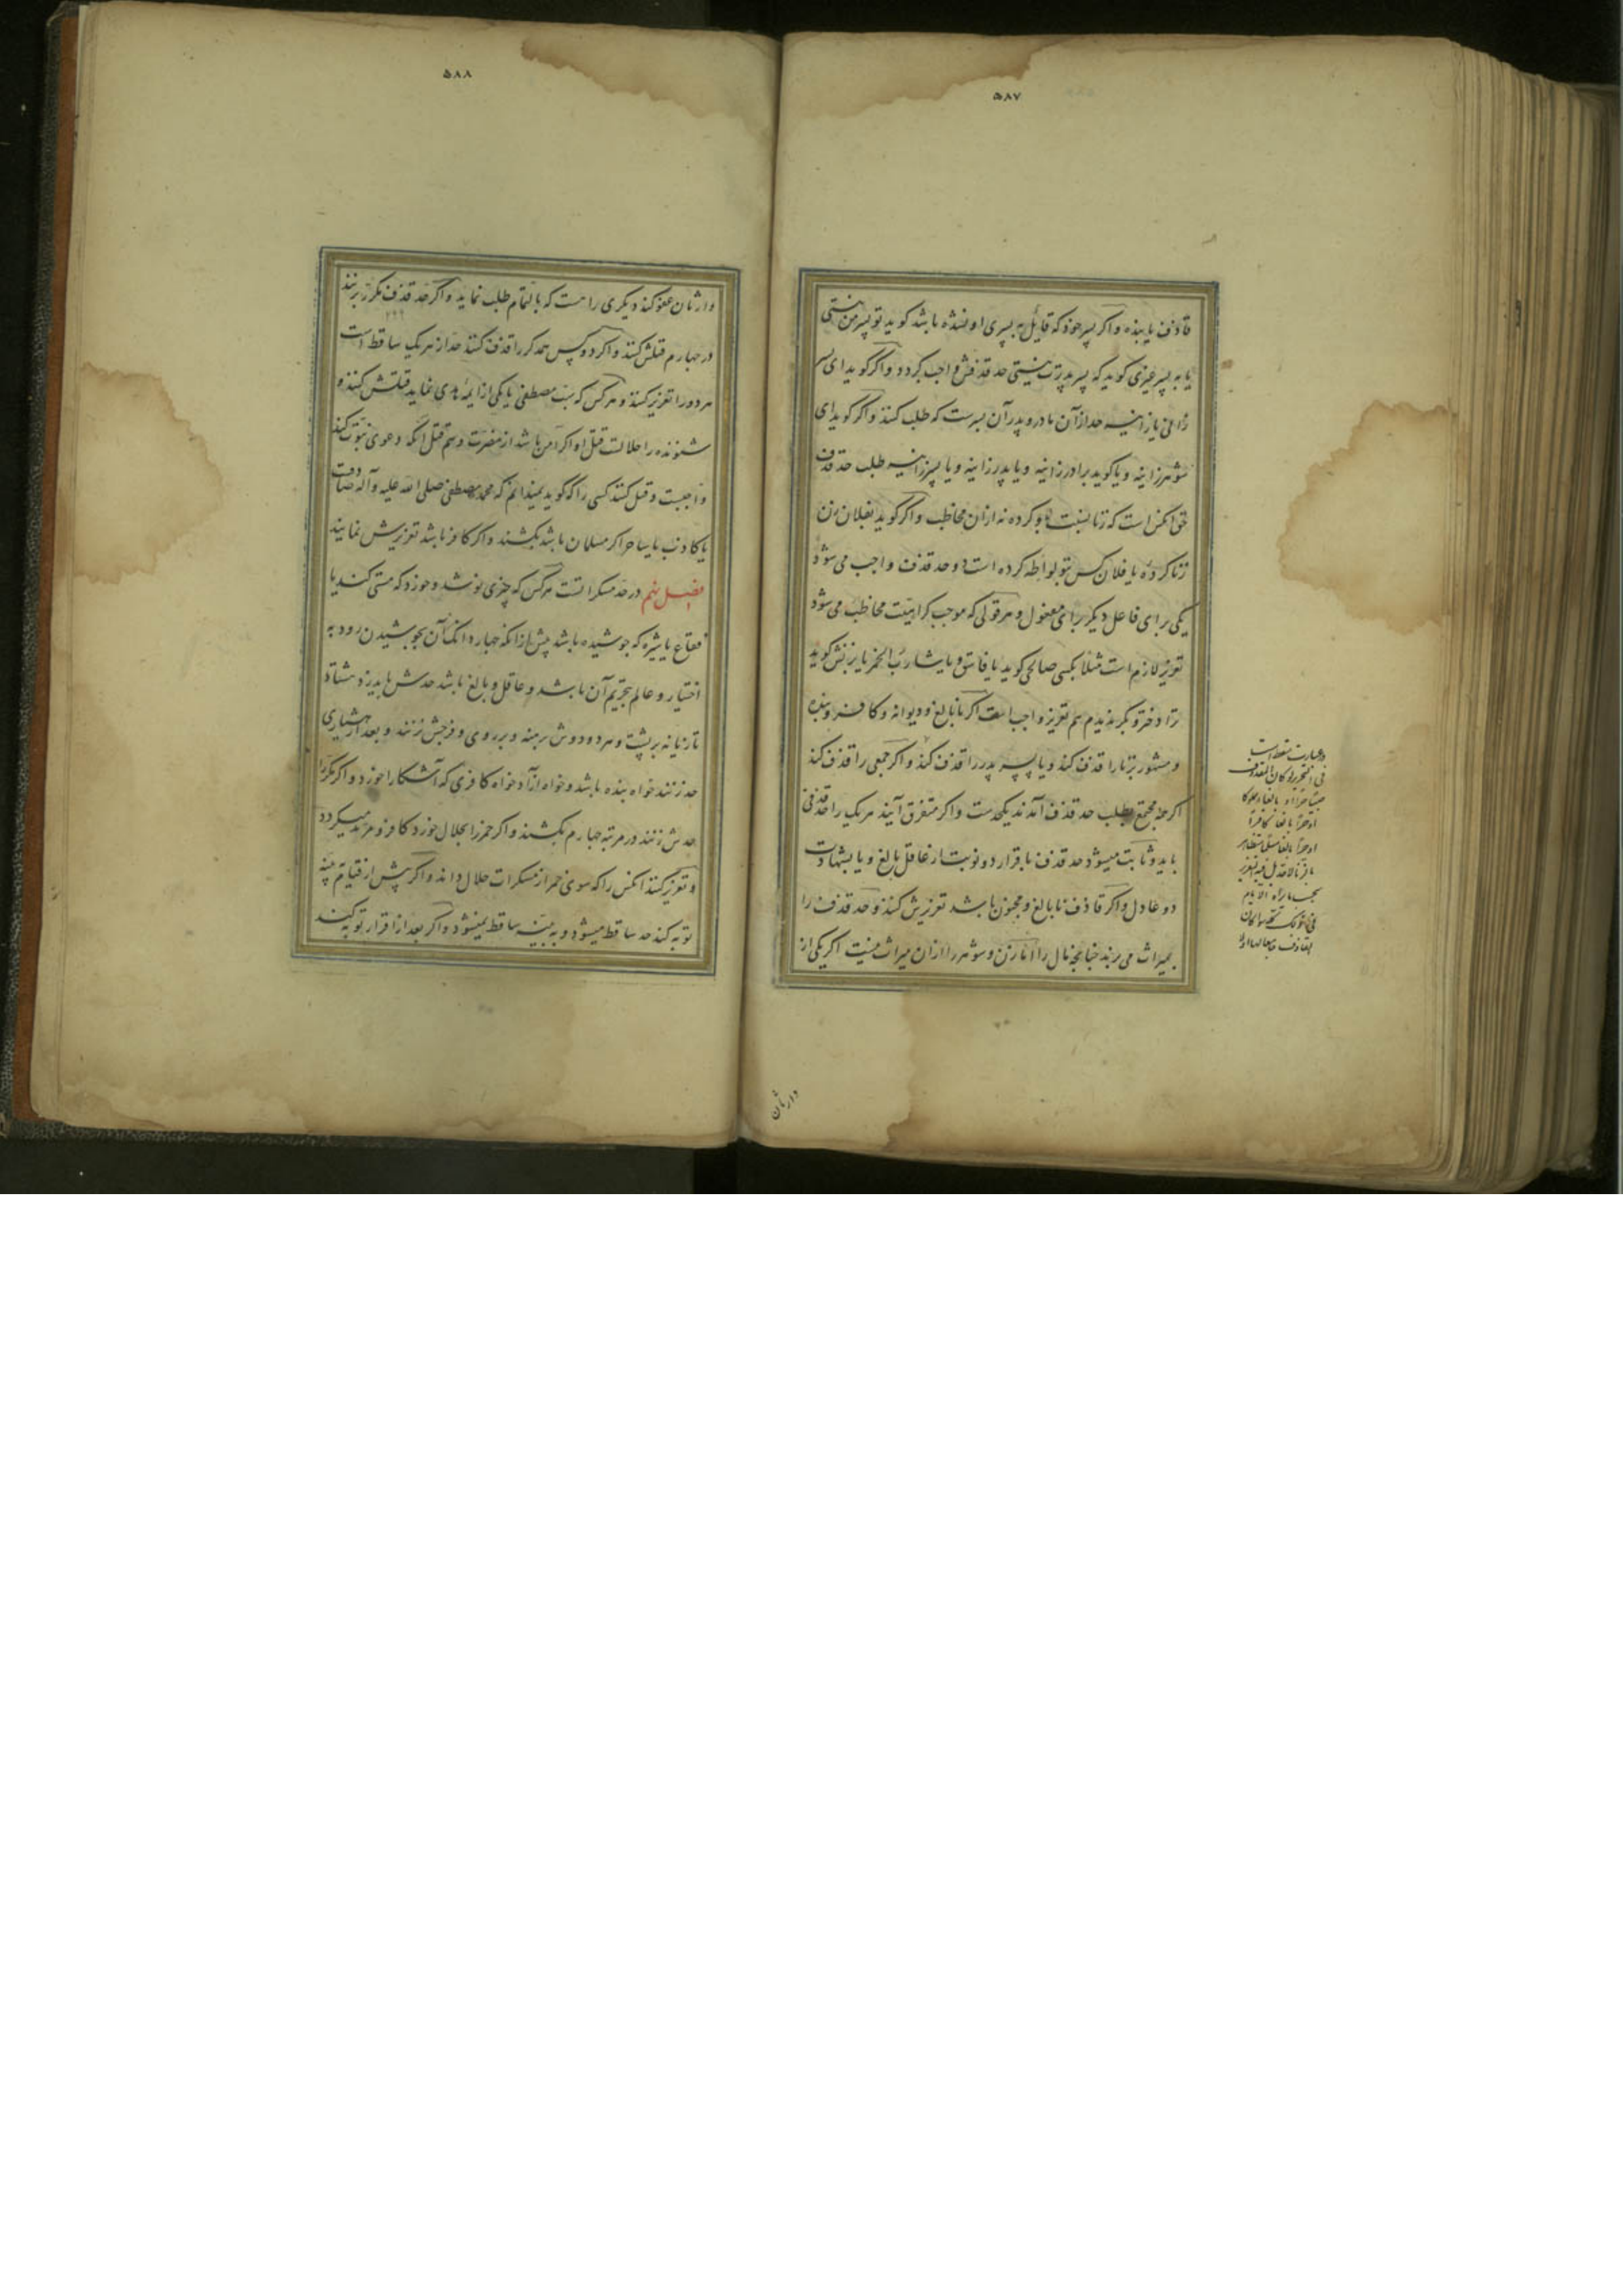 ۵۸۷
قاذف یا بنده و اگر پسر خود که قایل به پسری او شده باشد گوید تو پسر من نیستی
یا به پسر غیری گوید که پسر پدرت نیستی حد قذفش واجب گردد و اگر گوید ای پسر
زانی یا زانیه حد از آن مادر و پدر آن پسرست که طلب کنند و اگر گوید ای
شوهر زانیه و یا گوید برادر زانیه و یا پدر زانیه و یا پسر زانیه طلب حد قذف
حق آنکس است که زنا نسبت باو کرده نه از ان مخاطب و اگر گوید بفلان زن
زنا کردهٔ یا فلان کس بتو لواطه کرده است دو حد قذف واجب می شود
یکی برای فاعل دیگر برای مفعول و هر قولی که موجب کراهیت مخاطب می شود
تعزیر لازم است مثلا بکسی صالحی گوید یا فاسق و یا شارب الخمر یا بزنش گوید
ترا دختر و بکر ندیدم هم تعزیر واجب است اگر نابالغ و دیوانه و کافر و بنده
و مشهور بزنا را قذف کند و یا پسر پدر را قذف کند و اگر جمعی را قذف کند
اگر همه مجتمع بطلب حد قذف آمدند یکحدست و اگر متفرق آیند هر یک را حد قذفی
باید و ثابت میشود حد قذف باقرار دو نوبت از عاقل بالغ و یا بشهادت
دو عادل و اگر قاذف نابالغ و مجنون باشد تعزیرش کنند و حد قذف را
بمیراث می برند چنانچه مال را اما زن و شوهر را از ان میراث نیست اگر یکی از
در عبارت سقط است
فی التحریر لو کان المقذوف
او حرا بالغا کافرا
القاذف
وارثان
۵۸۸
وارثان عفو کند دیگری را هست که بالتمام طلب نماید و اگر حد قذف مکرر بزنند
در چهارم قتلش کنند و اگر دو کس همدگر را قذف کنند حد از هر یک ساقط است
هر دو را تعزیر کنند و هر کس که سب مصطفی یا یکی از ایمهٔ هدی نماید قتلش کنند و
شنونده را حلالست قتل او اگر امن باشد از مضرت و هم قتل آنکه دعوی نبوت کند
واجبست و قتل کنند کسی را که گوید نمیدانم که محمد مصطفی صلی الله علیه وآله صادقست
یا کاذب یا ساحر اگر مسلمان باشد بکشند و اگر کافر باشد تعزیرش نمایند
فصل نهم در حد مسکراتست هر کس که چیزی نوشد و خورد که مستی کند یا
فقاع یا شیره که جوشیده باشد پیش از آنکه چهار دانک آن بجوشیدن رود به
اختیار و عالم بتحریم آن باشد و عاقل و بالغ باشد حدش باید زد هشتاد
تازیانه بر پشت و هر دو دوش برهنه و بر روی و فرجش نزنند و بعد از هشیاری
حد زنند خواه بنده باشد و خواه آزاد خواه کافری که آشکارا خورد و اگر مکرر
حدش زنند در مرتبه چهارم بکشند و اگر خمر را بحلال خورد کافر و مرتد میگردد
و تعزیر کنند آنکس را که سوی خمر از مسکرات حلال داند و اگر پیش از قیام بینه
توبه کند حد ساقط میشود و به بینه ساقط نمیشود و اگر بعد از اقرار توبه کند